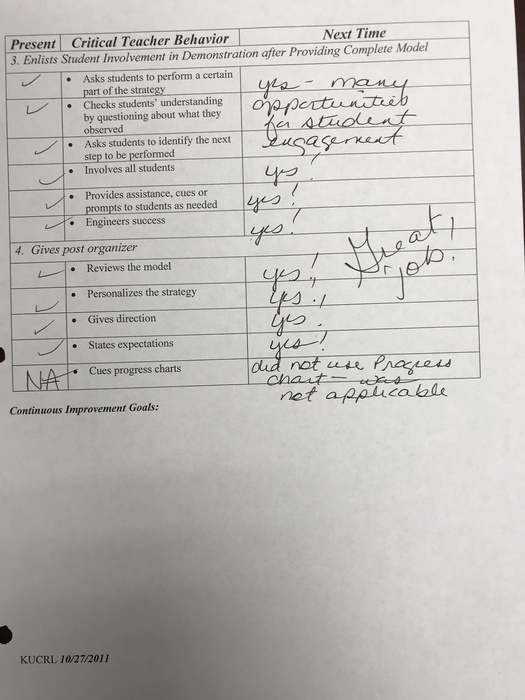 Present Critical Teacher Behavior Next Time
3. Enlists Student Involvement in Demonstration after Providing Complete Model
• Asks students to perform a certain
part of the strategy
yes - many
• Checks students' understanding
by questioning about what they
observed
opportunities
for student
• Asks students to identify the next
step to be performed
engagement
• Involves all students
yes!
• Provides assistance, cues or
prompts to students as needed
yes!
• Engineers success
yes!
Great
job.
4. Gives post organizer
• Reviews the model
yes!
• Personalizes the strategy
yes!
• Gives direction
yes.
• States expectations
yes!
NA • Cues progress charts
did not use Progress
chart - was
not applicable
Continuous Improvement Goals:
KUCRL 10/27/2011